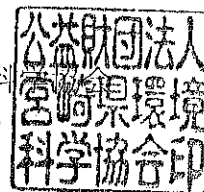 公益財団法人
宮崎県環境
科学協会印
科